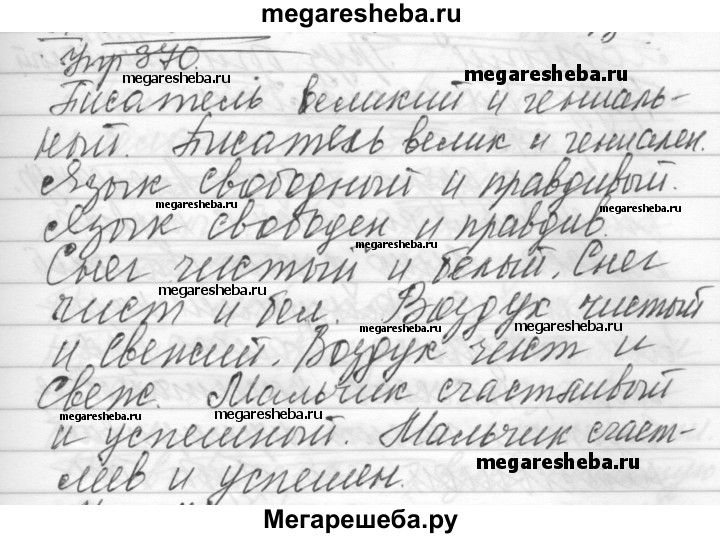 megaresheba.ru
Упр 370.
megaresheba.ru
megaresheba.ru
Писатель великий и гениаль-
ный. Писатель велик и гениален.
Язык свободный и правдивый.
megaresheba.ru
megaresheba.ru
Язык свободен и правдив.
megaresheba.ru
Снег чистый и белый. Снег
megaresheba.ru
megaresheba.ru
чист и бел. Воздух чистый
megaresheba.ru
megaresheba.ru
и свежий. Воздух чист и
свеж. Мальчик счастливый
megaresheba.ru
megaresheba.ru
и успешный. Мальчик счаст-
megaresheba.ru
лив и успешен.
Мегарешеба.ру